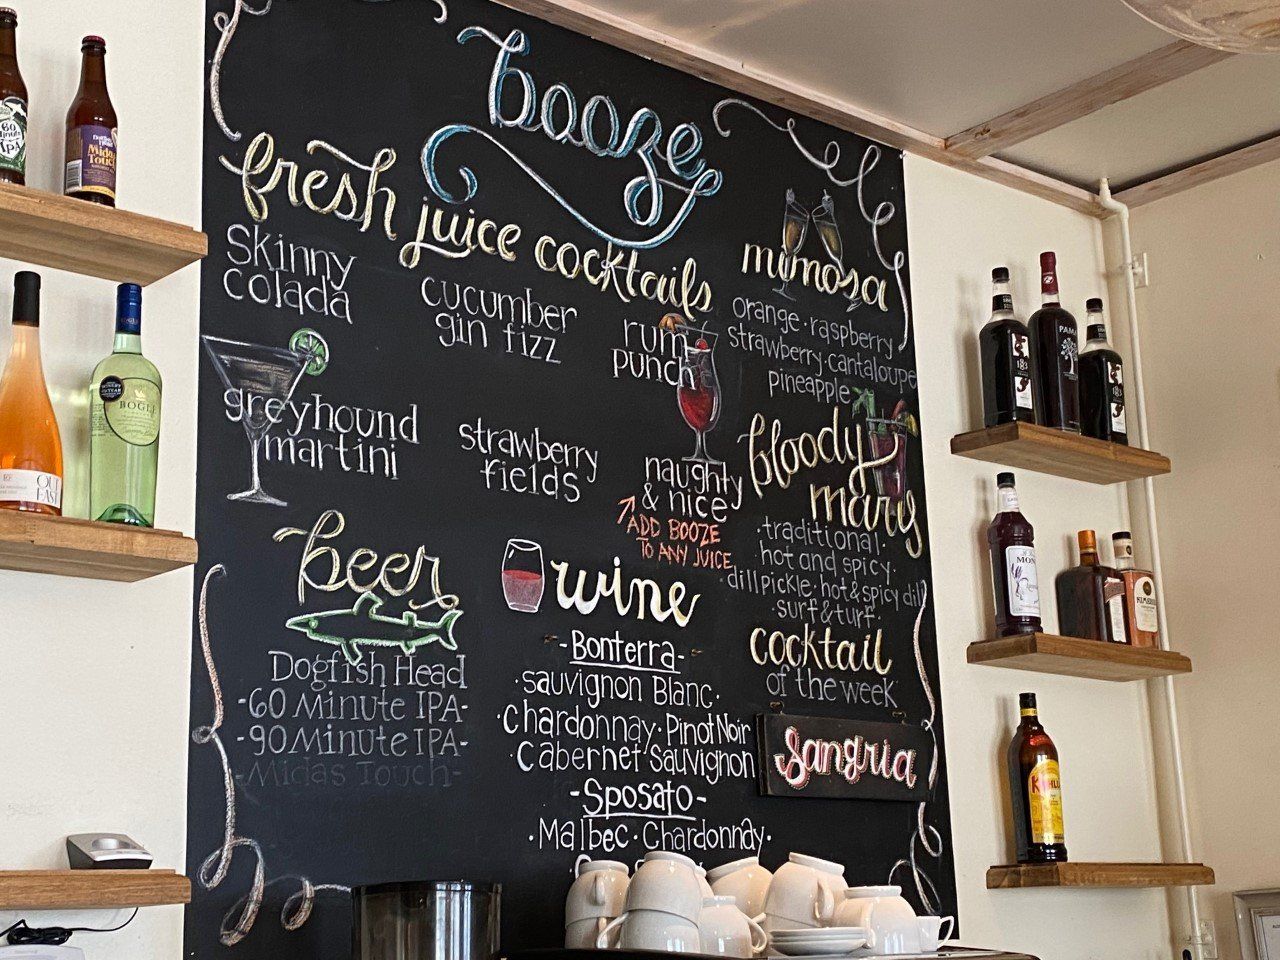 booze
fresh juice cocktails
skinny
colada
cucumber
gin fizz
rum
punch
greyhound
martini
strawberry
fields
naughty
& nice
ADD BOOZE
TO ANY JUICE
mimosa
orange · raspberry
strawberry · cantaloupe
pineapple
bloody
mary
· traditional ·
hot and spicy
dill pickle · hot & spicy dill
· surf & turf ·
cocktail
of the week
sangria
beer
Dogfish Head
-60 Minute IPA-
-90 Minute IPA-
-Midas Touch-
wine
-Bonterra-
· sauvignon Blanc ·
· Chardonnay · Pinot Noir
· Cabernet Sauvignon
-Sposato-
· Malbec · Chardonnay ·
60
Minute
IPA
Midas
Touch
BOGLE
PAMA
MON